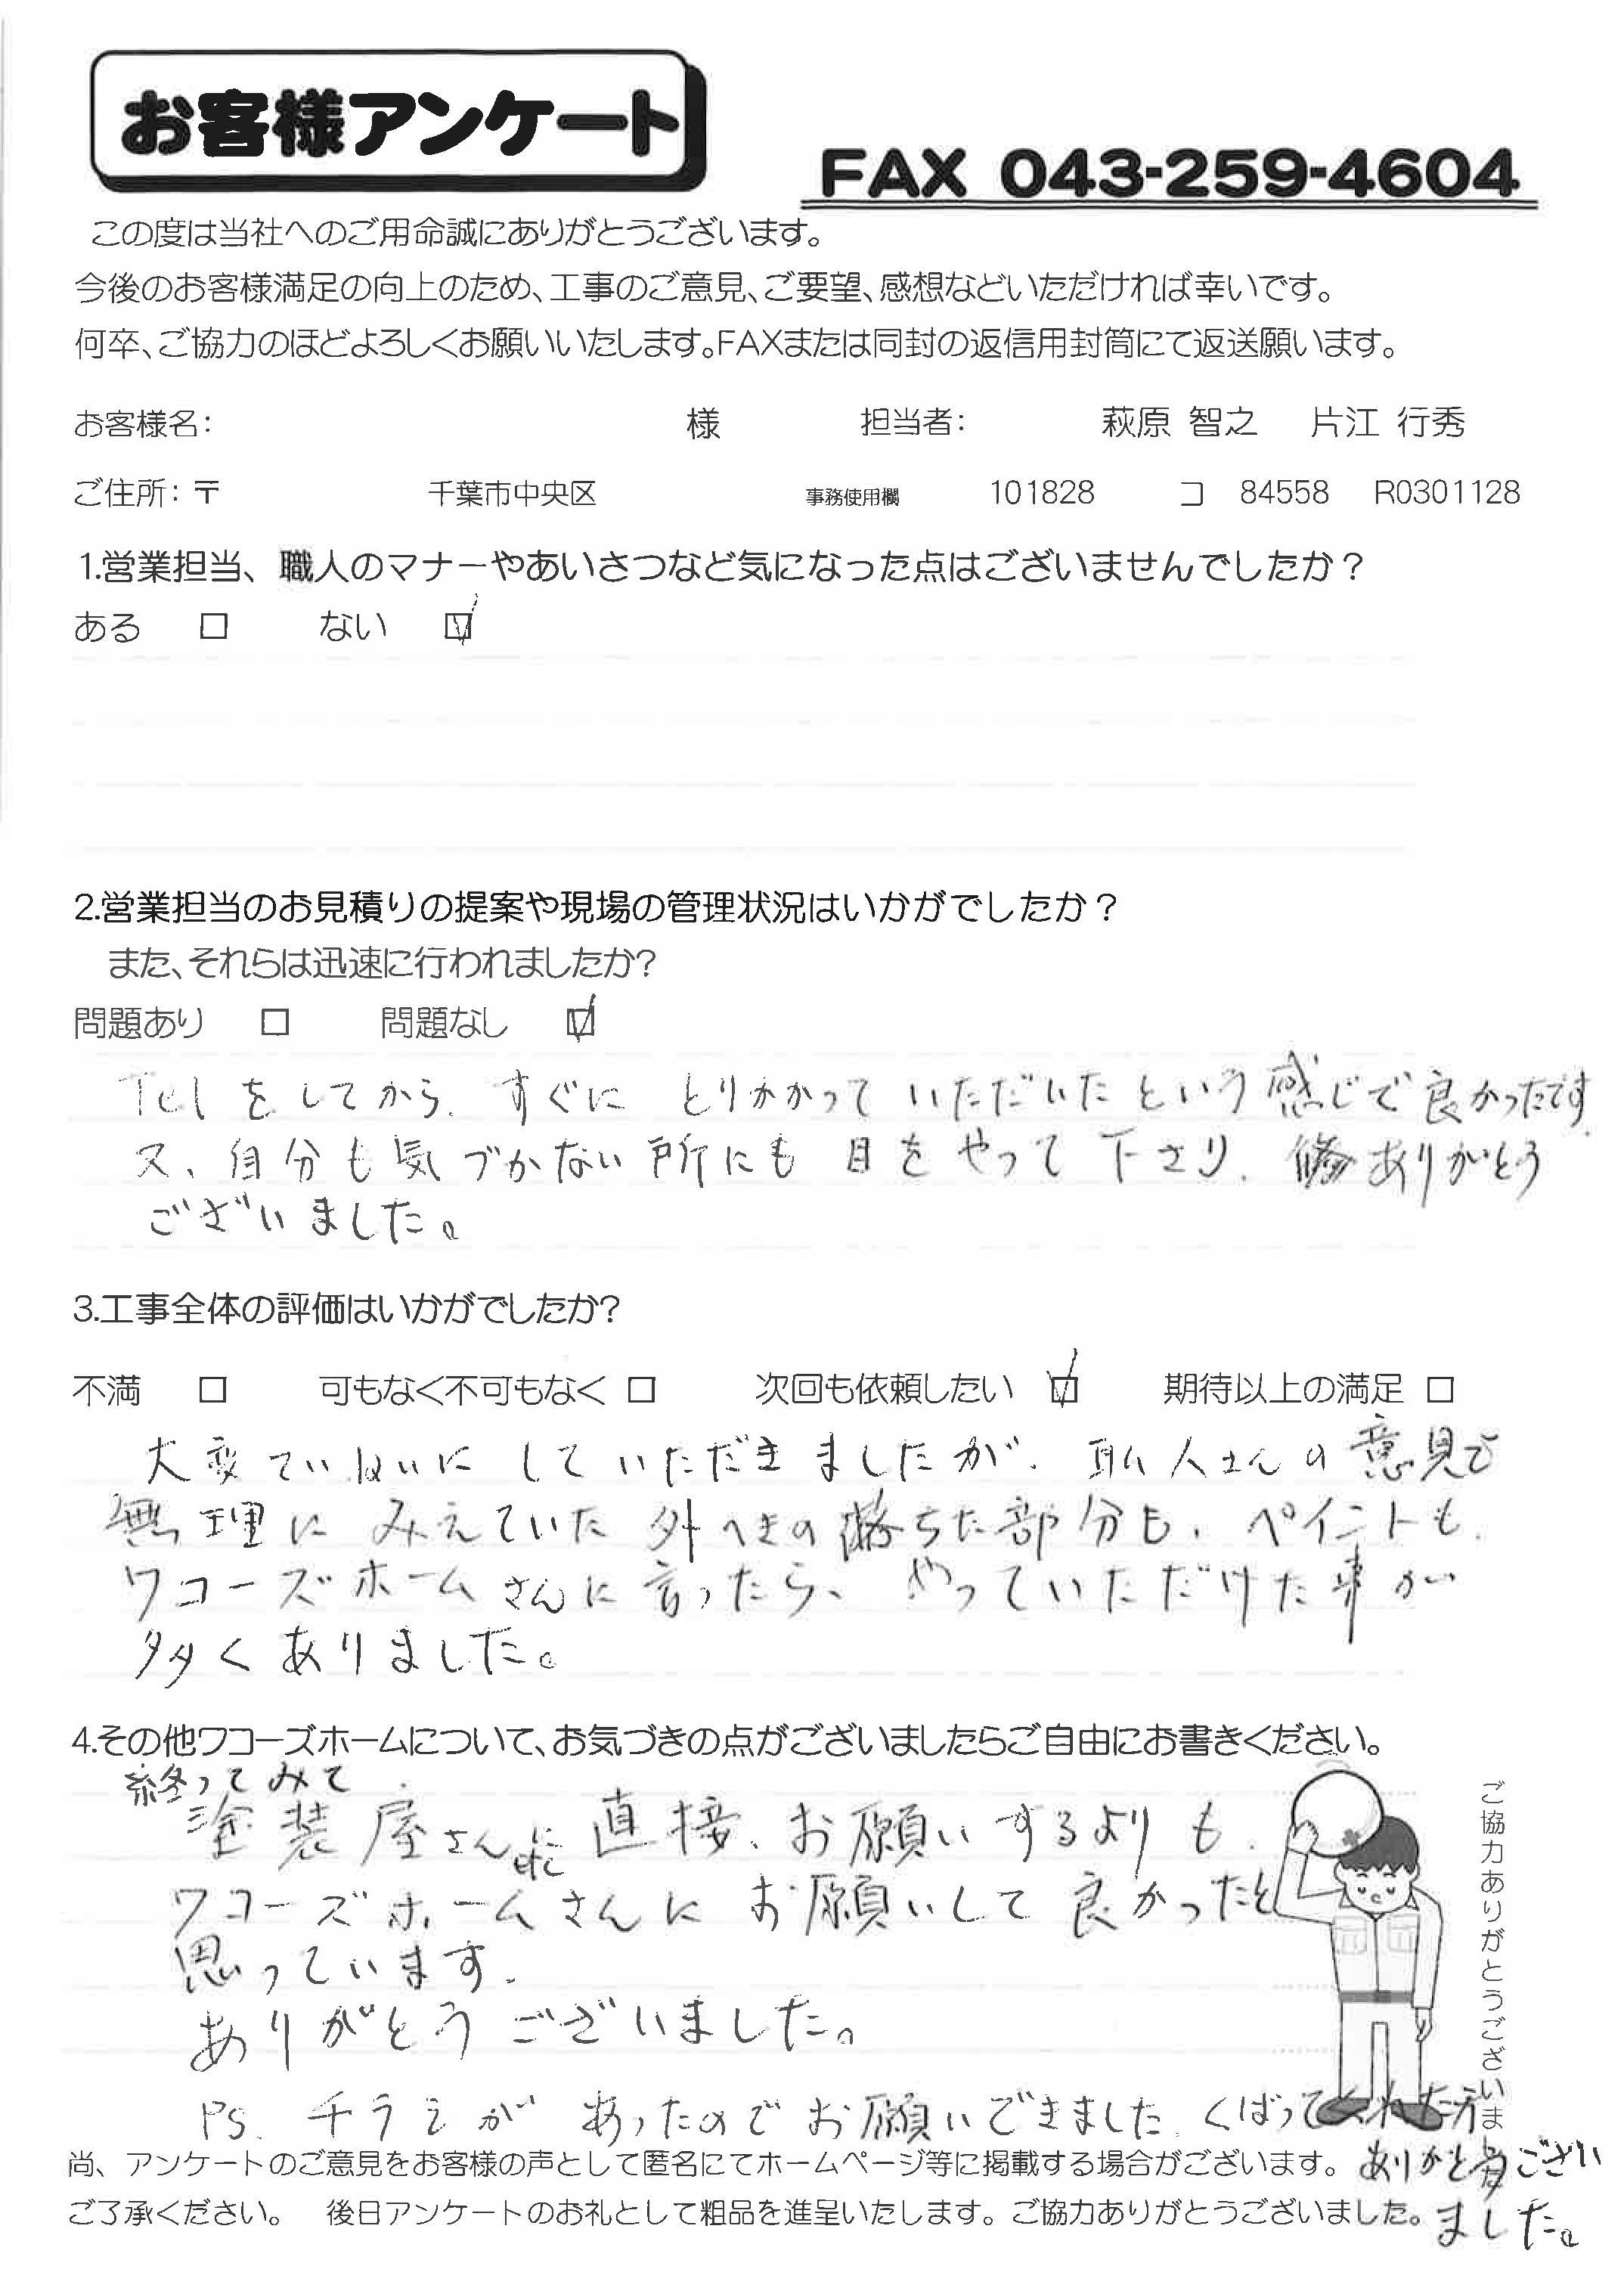 お客様アンケート
FAX 043-259-4604
この度は当社へのご用命誠にありがとうございます。
今後のお客様満足の向上のため、工事のご意見、ご要望、感想などいただければ幸いです。
何卒、ご協力のほどよろしくお願いいたします。FAXまたは同封の返信用封筒にて返送願います。
お客様名: 様 担当者: 萩原 智之 片江 行秀
ご住所: 〒 千葉市中央区 事務使用欄 101828 コ 84558 R0301128
1.営業担当、職人のマナーやあいさつなど気になった点はございませんでしたか？
ある □ ない ☑
2.営業担当のお見積りの提案や現場の管理状況はいかがでしたか？
また、それらは迅速に行われましたか?
問題あり □ 問題なし ☑
Telをしてから、すぐに とりかかって いただいた という 感じで良かったです
又、自分も気づかない所にも 目をやって下さり、ありがとう
ございました。
3.工事全体の評価はいかがでしたか?
不満 □ 可もなく不可もなく □ 次回も依頼したい ☑ 期待以上の満足 □
大変ていねいに していただきましたが、職人さんの意見で
無理に みえていた 外へきの落ちた部分も、ペイントも、
ワコーズホームさんに言ったら、やっていただけた事が
多くありました。
4.その他ワコーズホームについて、お気づきの点がございましたらご自由にお書きください。
終ってみて
塗装屋さんに直接、お願いするよりも、
ワコーズホームさんに お願いして 良かったと
思っています。
ありがとう ございました。
PS. チラシが あったのでお願いできました、くばってくれた方
ありがとうござい
ました。
ご協力ありがとうございま
尚、アンケートのご意見をお客様の声として匿名にてホームページ等に掲載する場合がございます。
ご了承ください。 後日アンケートのお礼として粗品を進呈いたします。ご協力ありがとうございました。